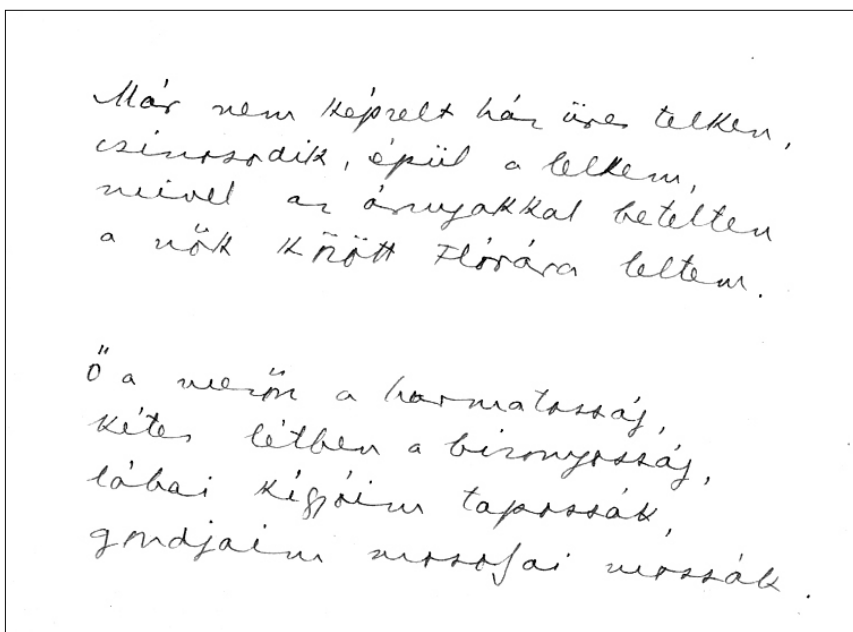 Már nem képzelt ház üres telken,
csinosodik, épül a lelkem,
mivel az árnyakkal betelten
a nők között Flórára leltem.
Ő a mezőn a harmatosság,
kétes létben a bizonyosság,
lábai kígyóim tapossák,
gondjaim mosolyai mossák.